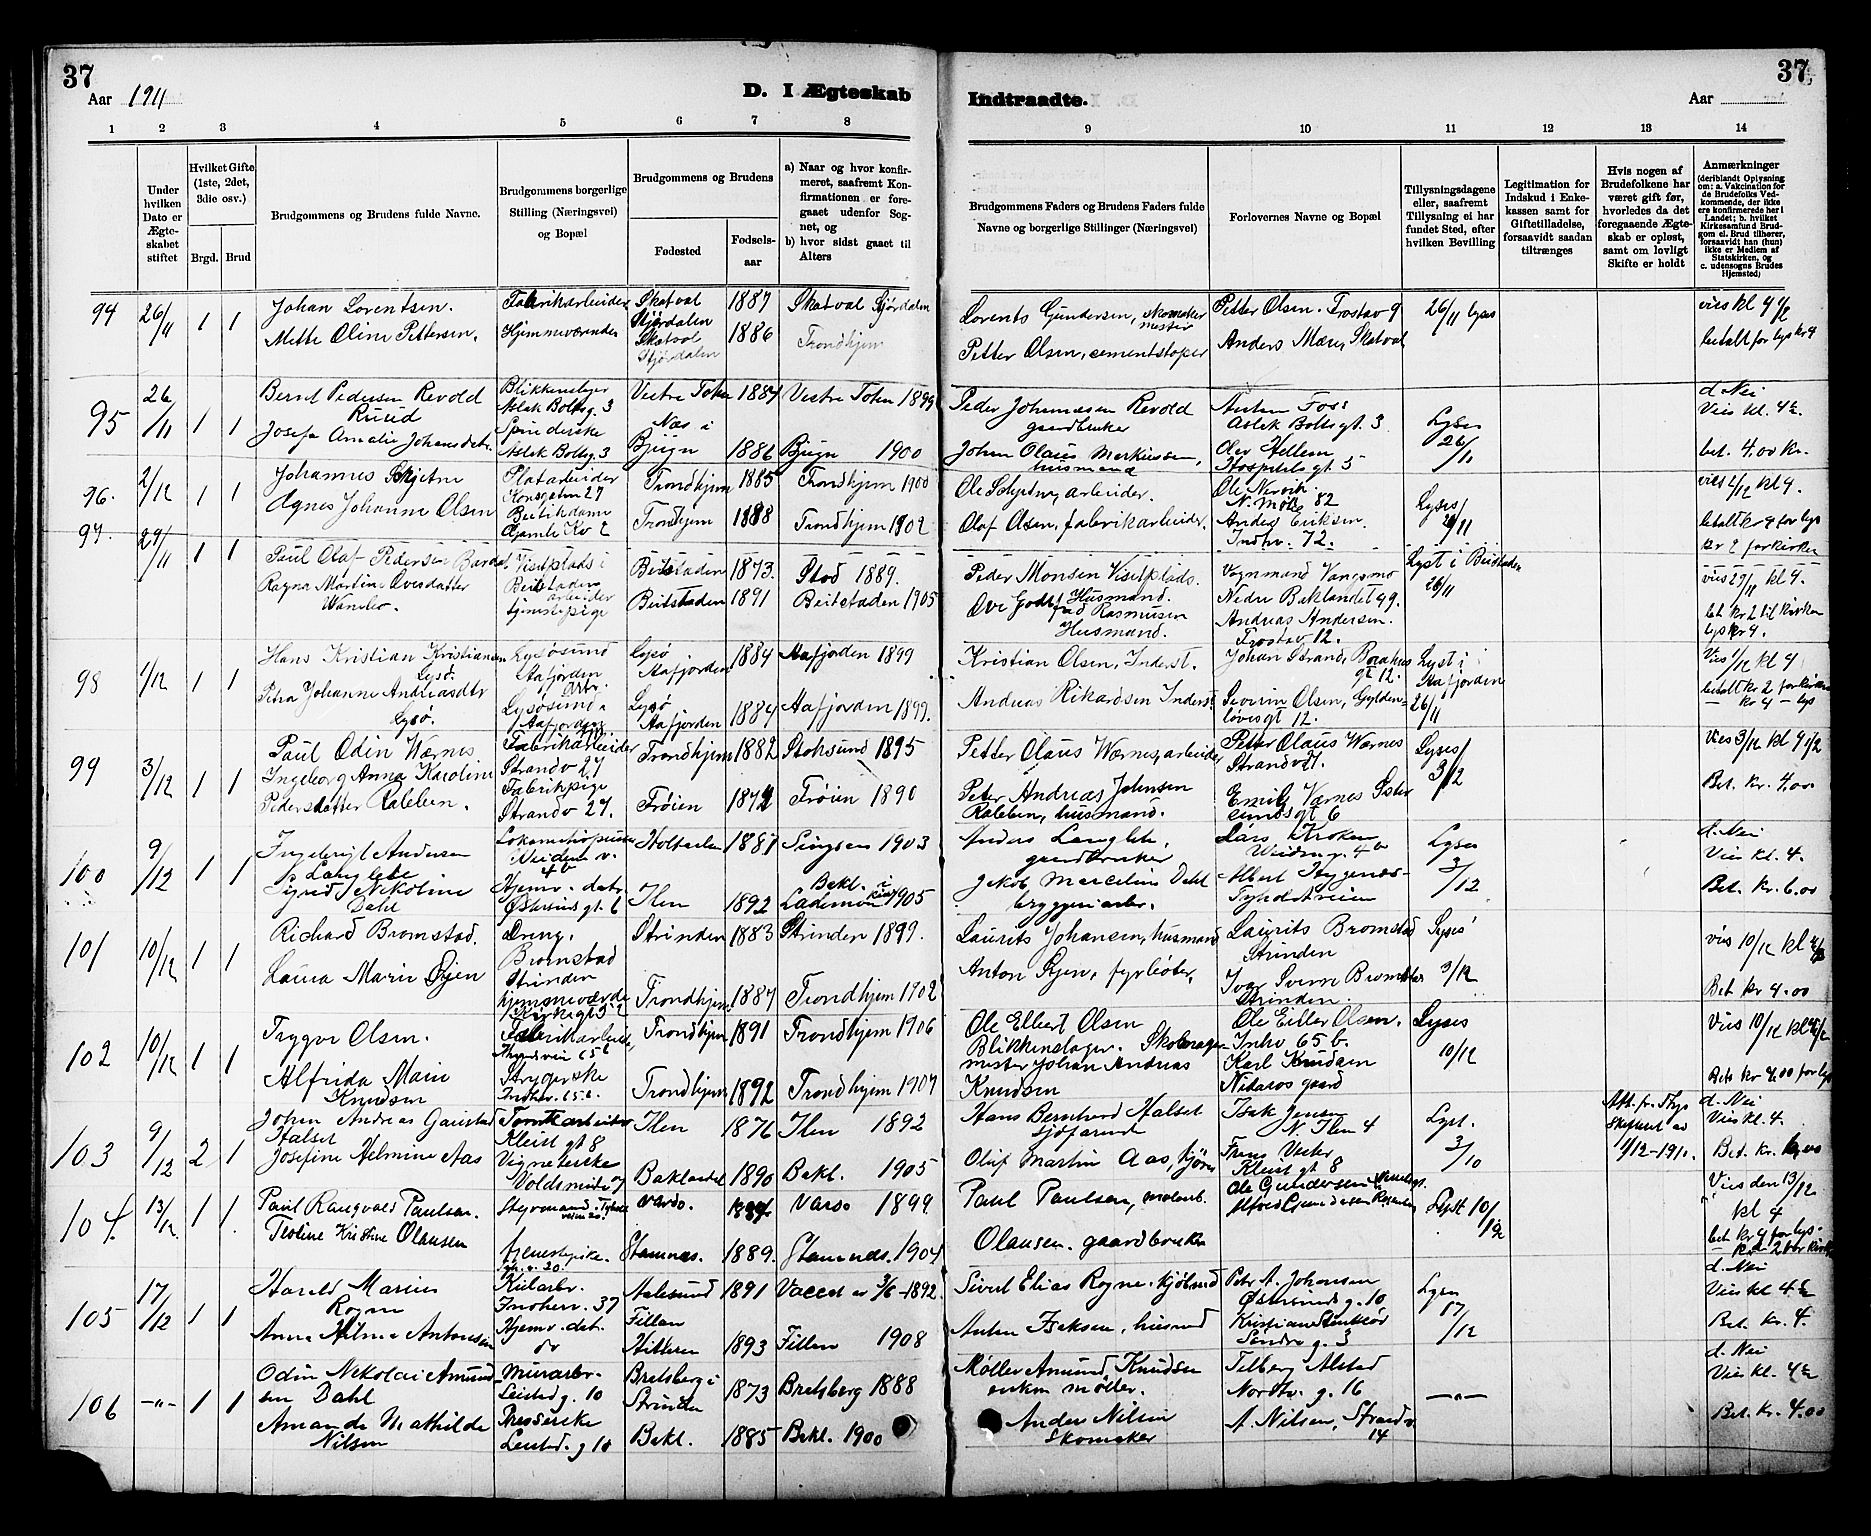 37
Aar 1911
D. I Ægteskab
Indtraadte.
Aar
37
1 2 3 4 5 6 7 8
9 10 11 12 13 14
Under hvilken Dato er Ægteskabet stiftet
Hvilket Gifte (1ste, 2det, 3die osv.)
Brgd. Brud
Brudgommens og Brudens fulde Navne.
Brudgommens borgerlige Stilling (Næringsvei) og Bopæl
Brudgommens og Brudens
Fødested
Fødselsaar
a) Naar og hvor konfirmeret, saafremt Konfirmationen er foregaaet udenfor Sognet, og
b) hvor sidst gaaet til Alters
Brudgommens Faders og Brudens Faders fulde Navne og borgerlige Stillinger (Næringsvei)
Forlovernes Navne og Bopæl
Tillysningsdagene eller, saafremt Tillysning ei har fundet Sted, efter hvilken Bevilling
Legitimation for Indskud i Enkekassen samt for Giftetilladelse, forsaavidt saadan tiltrænges
Hvis nogen af Brudefolkene har været gift før, hvorledes da det foregaaende Ægteskab er opløst, samt om lovligt Skifte er holdt
Anmærkninger
(deriblandt Oplysning om: a. Vakcination for de Brudefolks Vedkommende, der ikke ere konfirmerede her i Landet; b. hvilket Kirkesamfund Brudgom el. Brud tilhører, forsaavidt han (hun) ikke er Medlem af Statskirken, og c. udensogns Brudes Hjemsted)
94 26/11 1 1 Johan Lorentsen. Fabrikarbeider Skatval Stjørdalen 1887 Skatval Stjørdalen Lorents Gundersen, skomakermester Petter Olsen. Frostav 9 26/11 lyses vies kl 4 1/2
Mette Oline Pettersen. Hjemmeværende Skatval Stjørdalen 1886 Trondhjem Petter Olsen, cementstøper Anders Mære, Skatval betalt for lys kr 4
95 26/11 1 1 Bernt Pedersen Revold Ruud Blikkenslager Aslak Boltsg. 3 Vestre Toten 1884 Vestre Toten 1899 Peder Johannesen Revold gaardbruker Anton Foss Aslak Bolts gt. 3 Lyses 26/11 d. Nei Vies kl. 4 1/2.
Josefa Amalie Johansdatr. Spinderske Aslak Boltsg. 3 Næs i Bjugn 1886 Bjugn 1900 Johan Olaus Markussen, husmand Olav Hellem Hospitals gt. 5 bet. 4.00 kr.
96. 2/12 1 1 Johannes Skjetne Platarbeider Kongsgaten 27 Trondhjem 1885 Trondhjem 1900 Ole Skjetne, arbeider. Ole Nervik. N. Møllg 82 Lyses 26/11 vies 2/12 kl 4.
Agnes Johanne Olsen Butikdame Gamle Kv 2 Trondhjem 1888 Trondhjem 1902 Olaf Olsen, fabrikarbeider. Anders Eriksen. Indhv. 72. betalt kr 4 for lys kr 2 for kirken
97. 29/11 1 1 Paul Olaf Pedersen Bardal. Visetplads i Beitstaden arbeider Beitstaden 1873. Stod 1889. Peder Monsen Visetplads. Husmand. Vognmand Vangsmo Nedre Baklandet 49. Lyst i Beitstaden 26/11 vies 29/11 kl 4.
Ragna Martine Ovesdatter tjenestepige Beitstaden 1891 Beitstaden 1905 Ove Rasmussen Husmand. Andreas Andersen. Frostav 12. bet. kr 2 til kirken lys kr 4.
98 1/12 1 1 Hans Kristian Kristiansen Lysø. Lysøsund Aafjorden Arbr. Lysø Aafjorden 1884 Aafjorden 1899 Kristian Olsen, Inderst. Johan Strand, gt 12. Lyst i Aafjorden 26/11 Vies 1/12 kl 4
Petra Johanne Andreasdtr Lysø. Lysøsund. Aafjorden Lysø Aafjorden 1884 Aafjorden 1899. Andreas Rikardsen Inderst Severin Olsen, Gyldenløvesgt 12. betalt kr 2 for kirken — kr 4 — lys
99 3/12 1 1 Paul Odin Wærnes Fabrikarbeider Strandv 27 Trondhjem 1882 Stoksund 1895 Petter Olaus Wærnes, arbeider Petter Olaus Wærnes Strandv 27. Lyses 3/12 Vies 3/12 kl 4 1/2
Ingeborg Anna Karoline Pedersdatter Rabben. Fabrikpige Strandv 27. Frøien 1872 Frøien 1890 Peter Andreas Johnsen Rabben, husmand. Emil Værnes Østersundsgt 6 Bet. kr. 4.00
100 9/12 1 1 Ingebrigt Andersen Langlete Lokomotivpusser Weidem. v. 4b Holtaalen 1887 Singsaas 1903 Anders Langlete, gaardbruker Lars Kroken Weidem. v. 4b Lyses 3/12 d. Nei Vies kl. 4.
Sigrid Nekoline Dahl Hjemv. datr. Østersunds gt. 6 Ilen 1892 Bakl. i Lademoen kirke 1905 Jakob Marcelius Dahl bryggeriarbr. Albert Tyholtveien Bet. kr. 6.00
101 10/12 1 1 Richard Bromstad. Dreng. Bromstad Strinden Strinden 1883 Strinden 1899. Laurits Johansen, husmand Laurits Bromstad Strinden Lyses 3/12 vies 10/12 kl 4 1/2
Laura Marie Øyen hjemmeværde Kirkegt 32 Trondhjem 1887 Trondhjem 1902 Anton Øyen, fyrbøter. Ivar Sverre Bromstad Strinden. Bet kr 4.00
102 10/12 1 1 Trygve Olsen. Fabrikarbeider, Trondhjem 1891 Trondhjem 1906 Ole Elbert Olsen Blikkenslager. Ole Eilert Olsen. Inhv 65 b. Lyses 10/12 Vies 10/12 kl 4 1/2
Alfrida Marie Knudsen Strygerske Indhv. 65 b. Trondhjem 1892 Trondhjem 1907 Skomagermester Johan Andreas Knudsen Karl Knudsen Nidaros gaard Bets kr 4.00 for lys
103 9/12 2 1 Johan Andreas Gaustad Halset Tomtearbeider Kleist gt 8 Ilen 1876 Ilen 1892 Hans Bernhard Halset sjøfarende Isak Jensen N. Ilen 4 Lyst. 3/10 11/12-1910. d. Nei Vies kl. 4.
Josefine Helmine Aas Baklandet 1890 Bakl. 1905 Oluf Martin Aas, Frans Vester Kleist gt 8 Bet. kr. 6,00
104. 13/12 1 1. Paul Rangvald Paulsen. Styrmand. Vardø. Vardø 1899. Paul Paulsen, Ole Gundersen Lyst 10/12 Vies den 13/12 kl 4
Teoline Kristine Olausen tjenestepike. Stamnes. 1889. Stamnes. 1904 Olausen. gaardbruker bet kr 4 for lys. — kr 2 for kirken
105 17/12 1 1 Harald Marius Rogne Kularbr. Inohern. 37 Aalesund 1891 Vaccet av 3/6-1892. Sivert Elias Rogne. kjøbmd Petr A. Johansen Østersunds g. 10 Lyses 17/12 d. Nei Vies kl. 4 1/2
Anna Helma Antonsen Hjemv. dat. do Fillan Hitteren 1893 Fillan 1908 Anton Isaksen, husmd Søndre g. 3 Bet. kr. 4.
106 —„— 1 1 Odin Nekolai Amundsen Dahl Murarbr. Leistad g. 10 Bratsberg i Strinden 1873 Bratsberg 1888 Møller Amund Knudsen enkm møller. Telberg Alstad Nordtv. g. 16 —„— d. Nei Vies kl. 4 1/2
Amanda Mathilde Nilsen Presserske Leistad. g 10 Bakl. 1885 Bakl. 1900 Anders Nilsen Skomaker A. Nilsen, Strandv 14 Bet. kr. 4.00